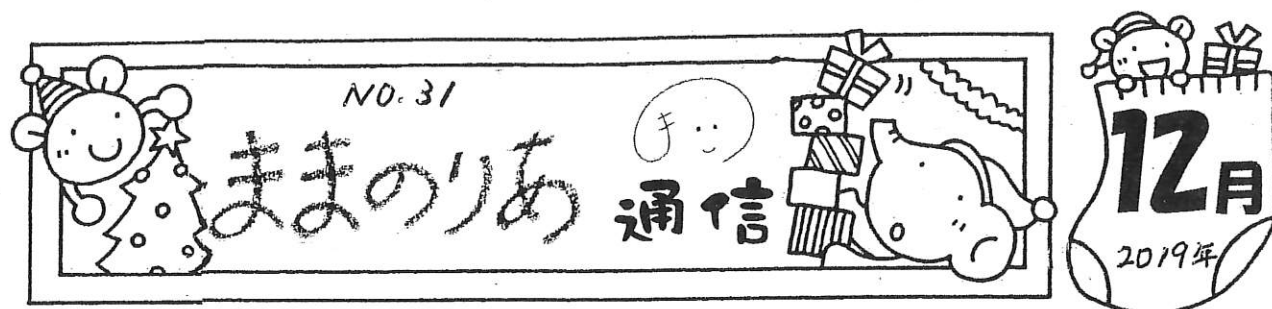 NO. 31
ままのりあ 通信
ま
12月
2019年